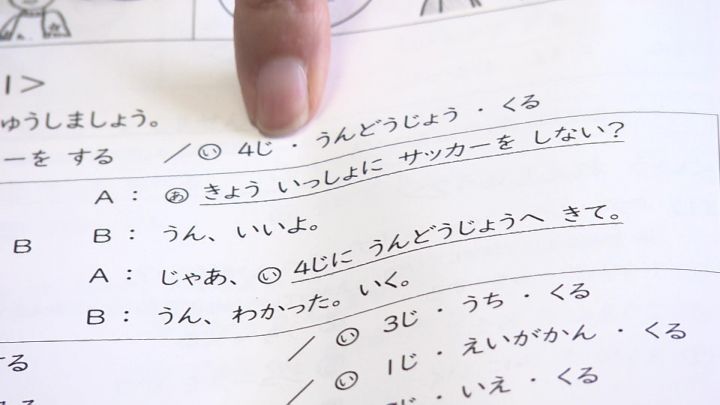 1>
ゅうしましょう。
ーを する ／ ㋑ 4じ ・ うんどうじょう ・ くる
A： ㋐ きょう いっしょに サッカーを しない？
B B： うん、いいよ。
A： じゃあ、㋑ 4じに うんどうじょうへ きて。
B： うん、わかった。いく。
／ ㋑ 3じ ・ うち ・ くる
する ／ ㋑ 1じ ・ えいがかん ・ くる
じ ・ いえ ・ くる